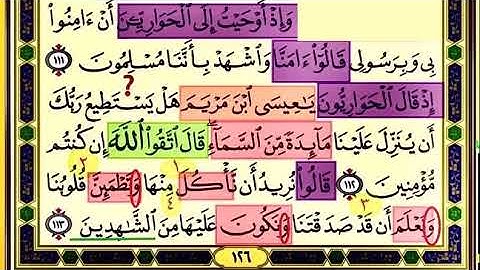 وَإِذْ أَوْحَيْتُ إِلَى ٱلْحَوَارِيِّـۧنَ أَنْ ءَامِنُوا۟
بِى وَبِرَسُولِى قَالُوٓا۟ ءَامَنَّا وَٱشْهَدْ بِأَنَّنَا مُسْلِمُونَ ١١١
إِذْ قَالَ ٱلْحَوَارِيُّونَ يَـٰعِيسَى ٱبْنَ مَرْيَمَ ؟ هَلْ يَسْتَطِيعُ رَبُّكَ
أَن يُنَزِّلَ عَلَيْنَا مَآئِدَةً مِّنَ ٱلسَّمَآءِ قَالَ ٱتَّقُوا۟ ٱللَّهَ إِن كُنتُم
مُّؤْمِنِينَ ١١٢ قَالُوا۟ نُرِيدُ أَن نَّأْكُلَ ١ مِنْهَا وَتَطْمَئِنَّ ٢ قُلُوبُنَا
وَنَعْلَمَ ٣ أَن قَدْ صَدَقْتَنَا وَنَكُونَ ٤ عَلَيْهَا مِنَ ٱلشَّـٰهِدِينَ ١١٣
١٢٦